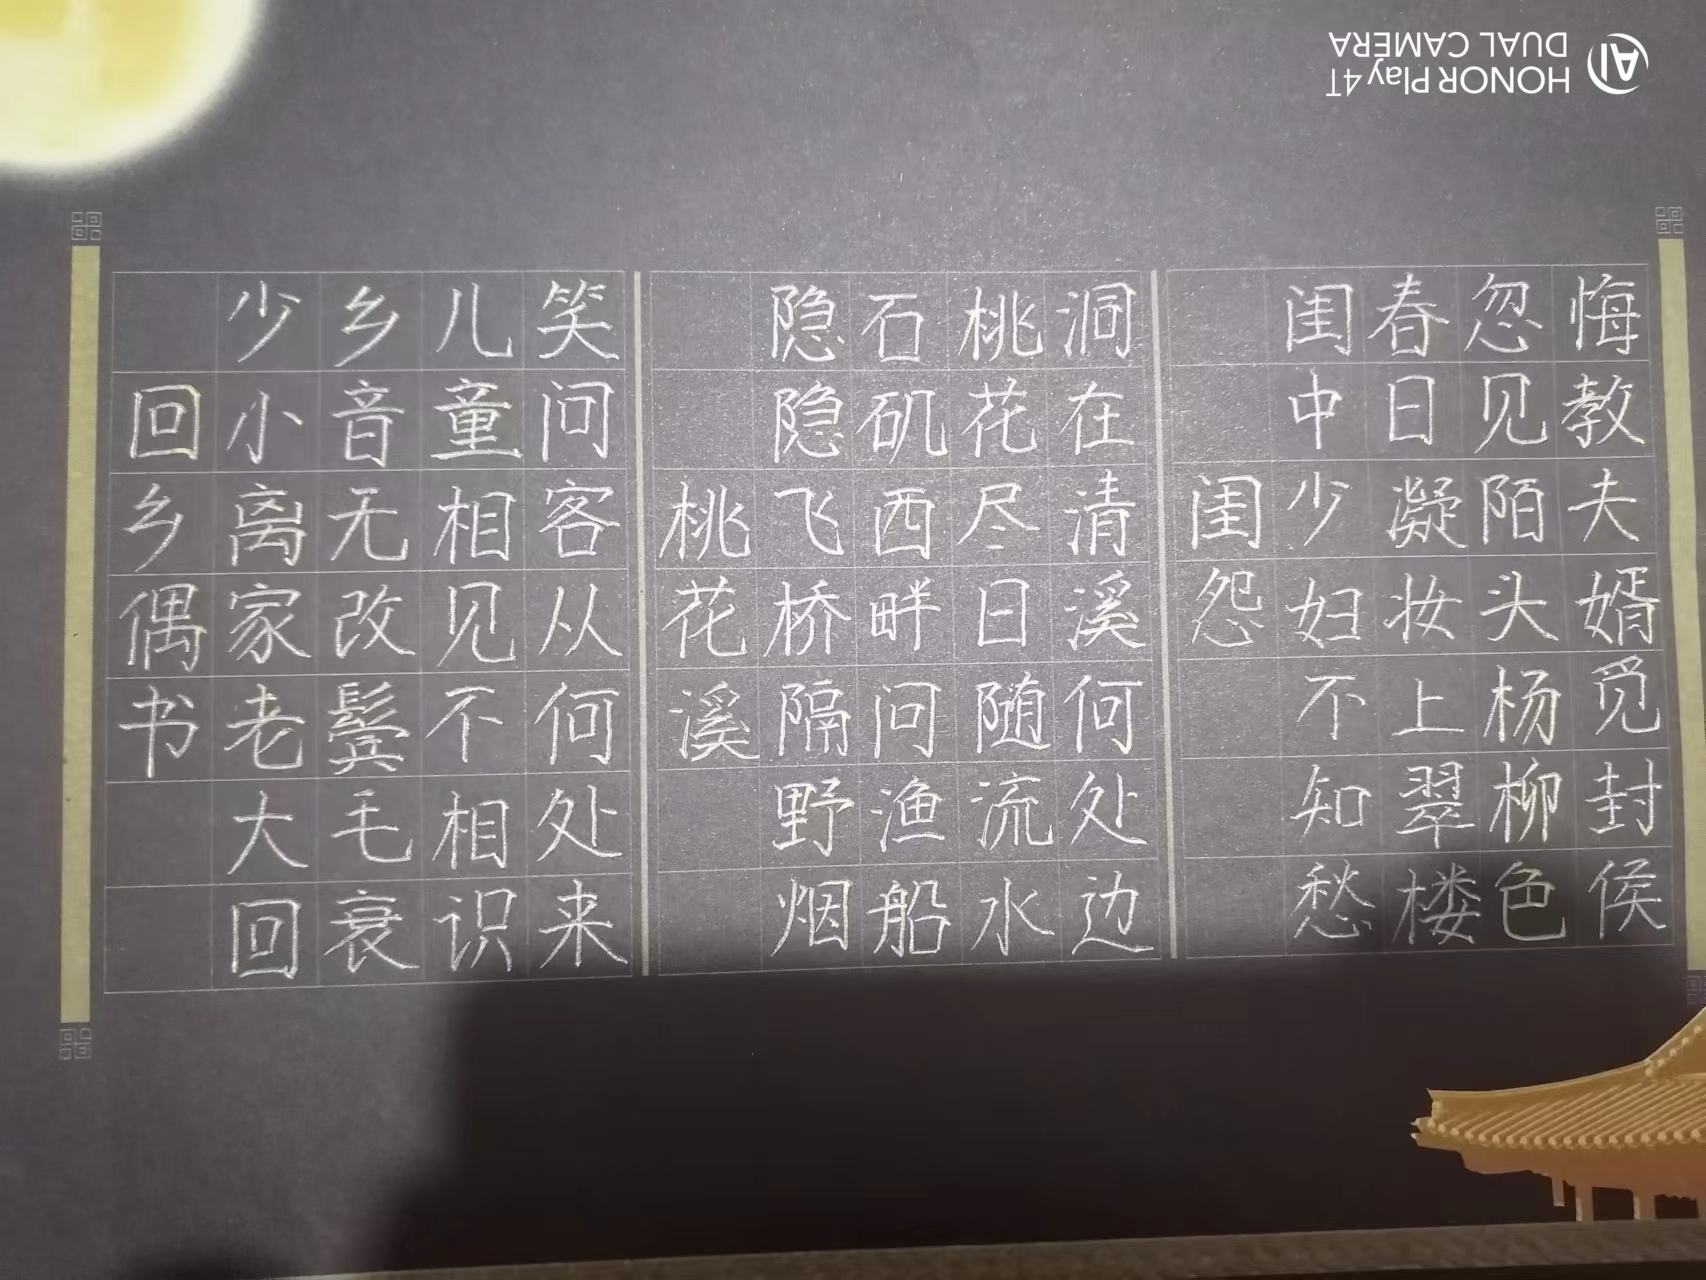 回乡偶书
少小离家老大回
乡音无改鬓毛衰
儿童相见不相识
笑问客从何处来
桃花溪
隐隐飞桥隔野烟
石矶西畔问渔船
桃花尽日随流水
洞在清溪何处边
闺怨
闺中少妇不知愁
春日凝妆上翠楼
忽见陌头杨柳色
悔教夫婿觅封侯
AI
HONOR Play 4T
DUAL CAMERA